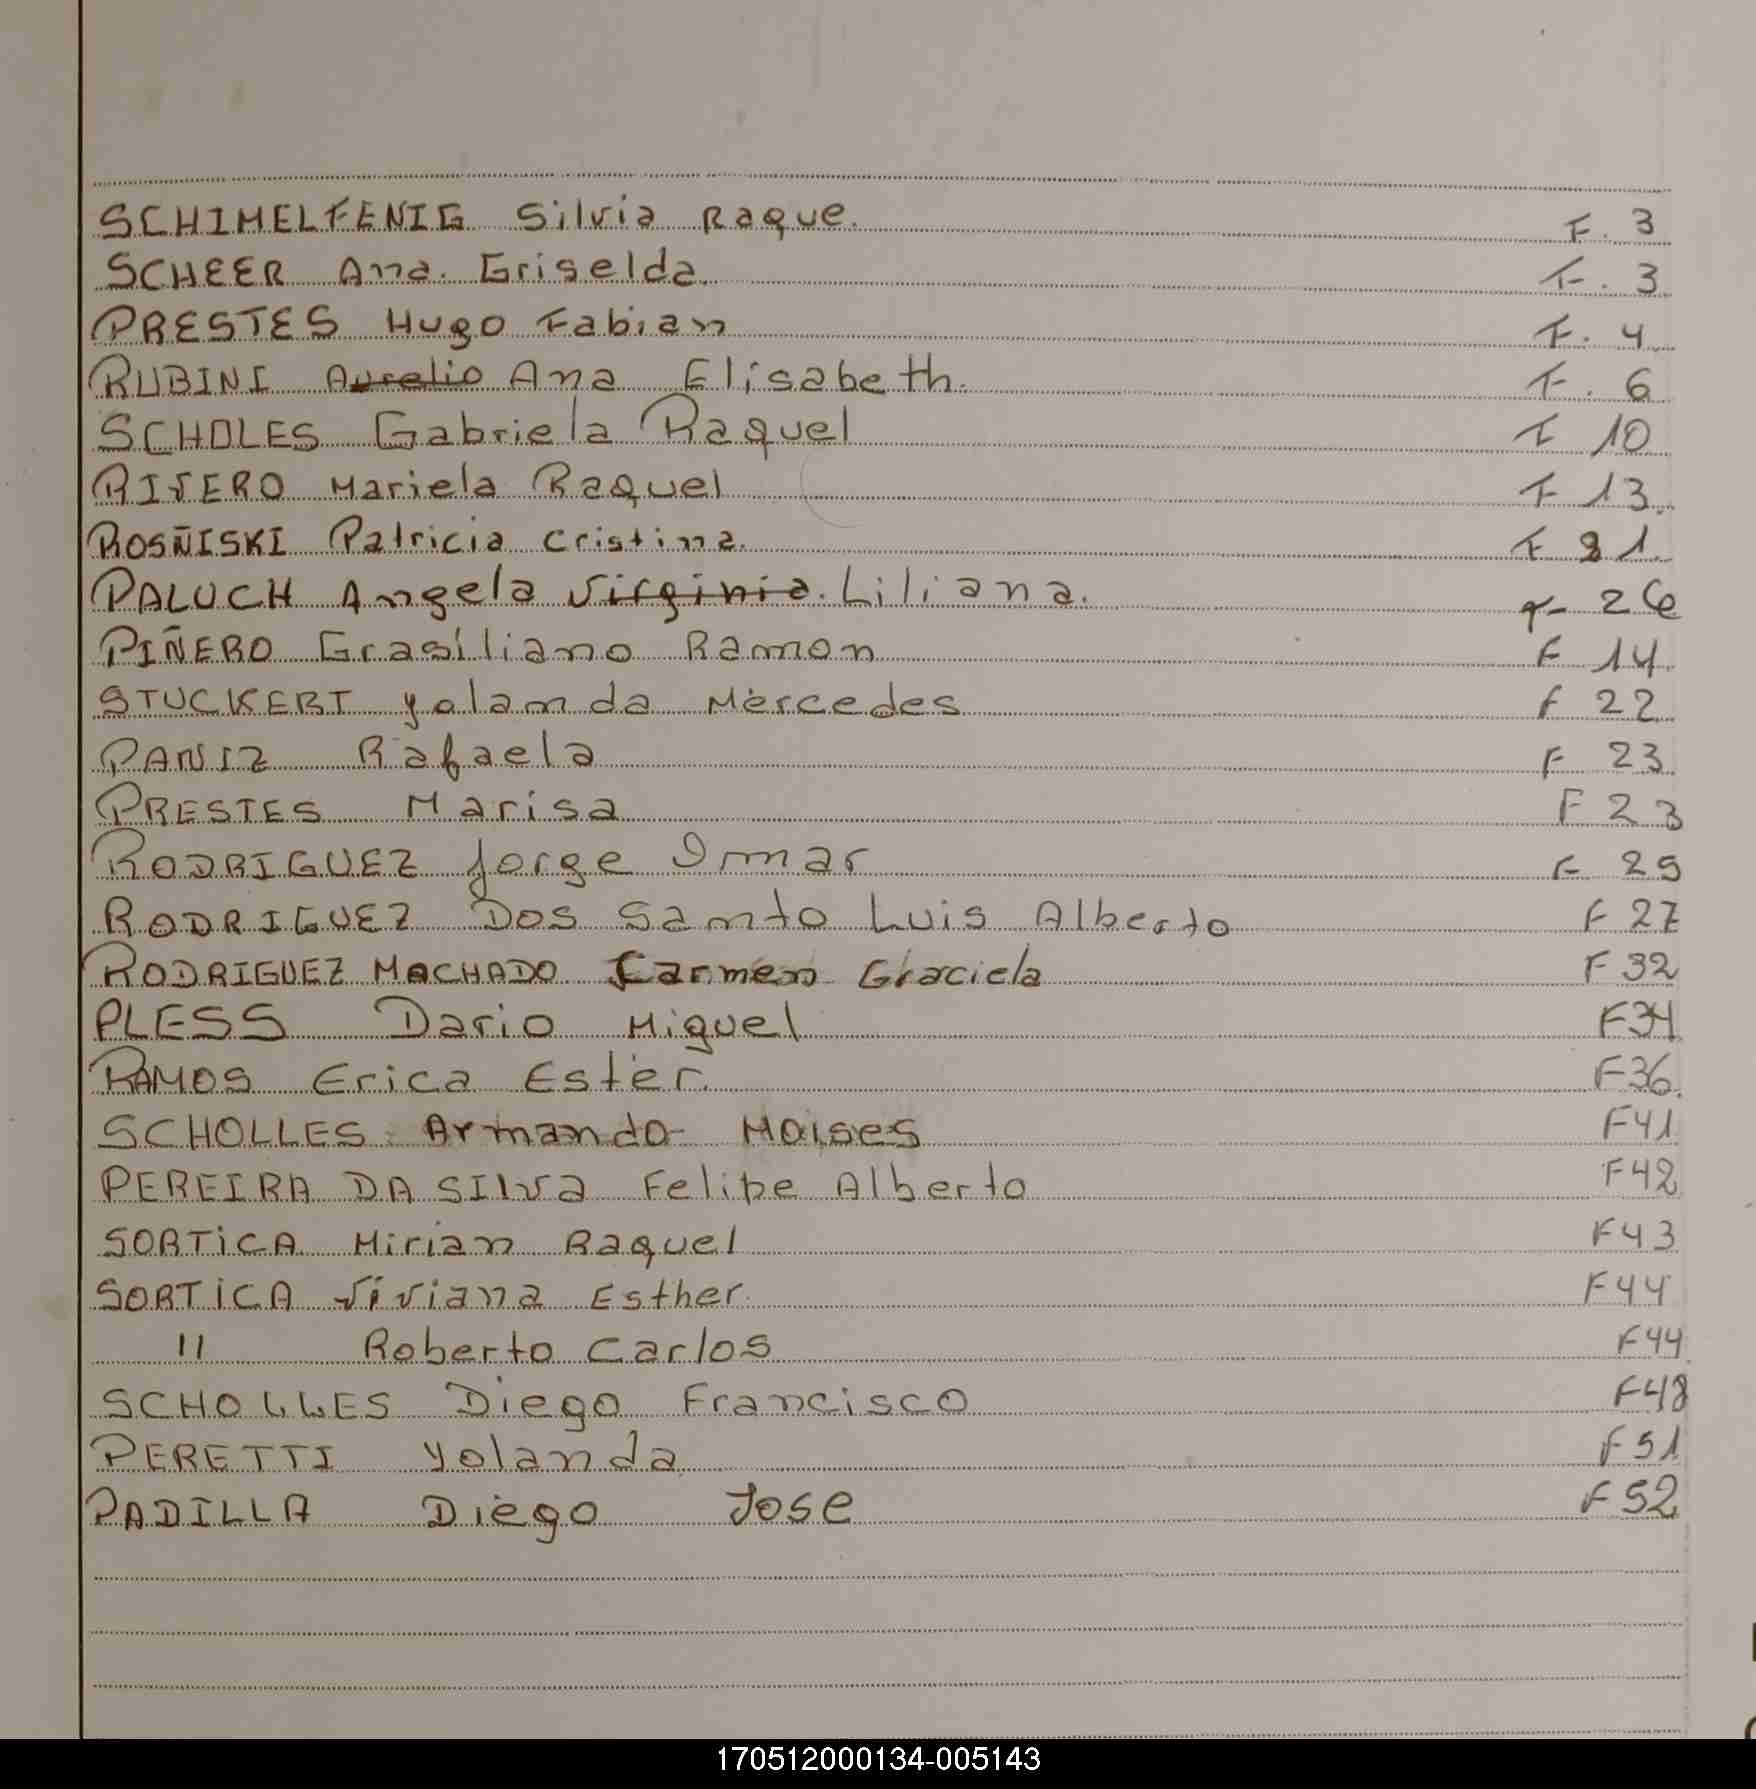 SCHIMELFENIG Silvia Raque. F. 3
SCHEER Ana. Griselda. F. 3
PRESTES Hugo Fabian F. 4
RUBINI Aurelio Ana Elisabeth. F. 6
SCHOLES Gabriela Raquel F 10
RIVERO Mariela Raquel F 13
ROSÑISKI Patricia Cristina. F 21
PALUCH Angela Virginia. Liliana. F 26
PIÑERO Grasiliano Ramon F 14
STUCKERT Yolanda Mercedes F 22
PANIZ Rafaela F 23
PRESTES Marisa F 23
RODRIGUEZ Jorge Omar F 25
RODRIGUEZ Dos Santo Luis Alberto F 27
RODRIGUEZ MACHADO Carmen Graciela F 32
PLESS Dario Miguel F34
RAMOS Erica Ester. F36.
SCHOLLES Armando Moises F41
PEREIRA DA SILVA Felipe Alberto F42
SORTiCA Mirian Raquel F43
SORTiCA Viviana Esther. F44
" Roberto Carlos F44
SCHOLLES Diego Francisco F48
PERETTI Yolanda F51
PADILLA Diego Jose F52
170512000134-005143